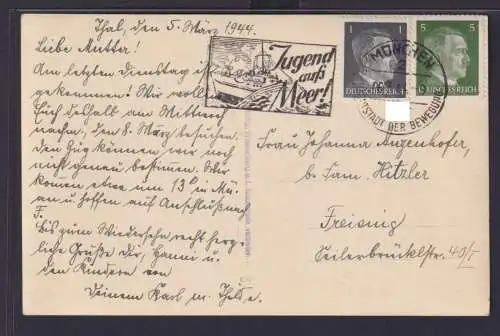 Thal, den 5. März 1944.
Liebe Mutter!
Am letzten Dienstag ist
gekommen! Wir woll
Euch deshalb am Mittwoch
nachm. den 8. März besuchen.
Den Zug können wir noch
nicht genau bestimmen. Wir
kommen etwa um 13 in Mü.
an u. hoffen auf Anschluß nach
F.
Bis zum Wiedersehn recht herz-
liche Grüße Dir, Hanni u.
den Kindern von
Deinem Karl m.
Jugend
aufs
Meer!
1
DEUTSCHES REICH
5
DEUTSCHES REICH
MÜNCHEN
HAUPTSTADT DER BEWEGUNG
Frau Johanna Angenhofer,
b. Fam. Hitzler
Freising
Seilerbrücklstr. 40/I